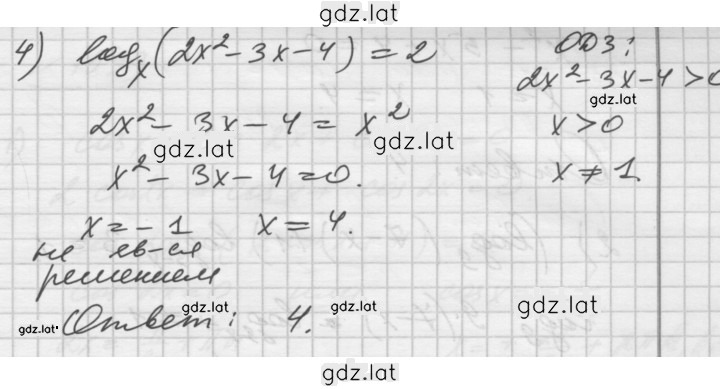 gdz.lat
4) log_x(2x² - 3x - 4) = 2
ОДЗ:
2x² - 3x - 4 > 0
gdz.lat
2x² - 3x - 4 = x²
gdz.lat
gdz.lat
x > 0
x² - 3x - 4 = 0.
x ≠ 1
x = -1 x = 4.
не яв-ся
решением
Ответ: 4.
gdz.lat
gdz.lat
gdz.lat
gdz.lat
gdz.lat